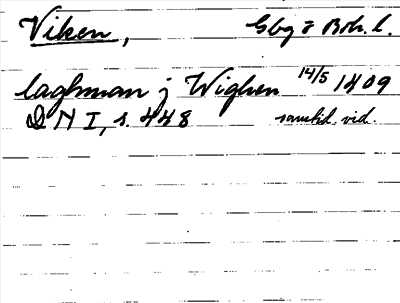 Viken, Gbg o Boh. l.
laghman j Wighen 14/5 1409
D N I, s. 448 samtid. vid.